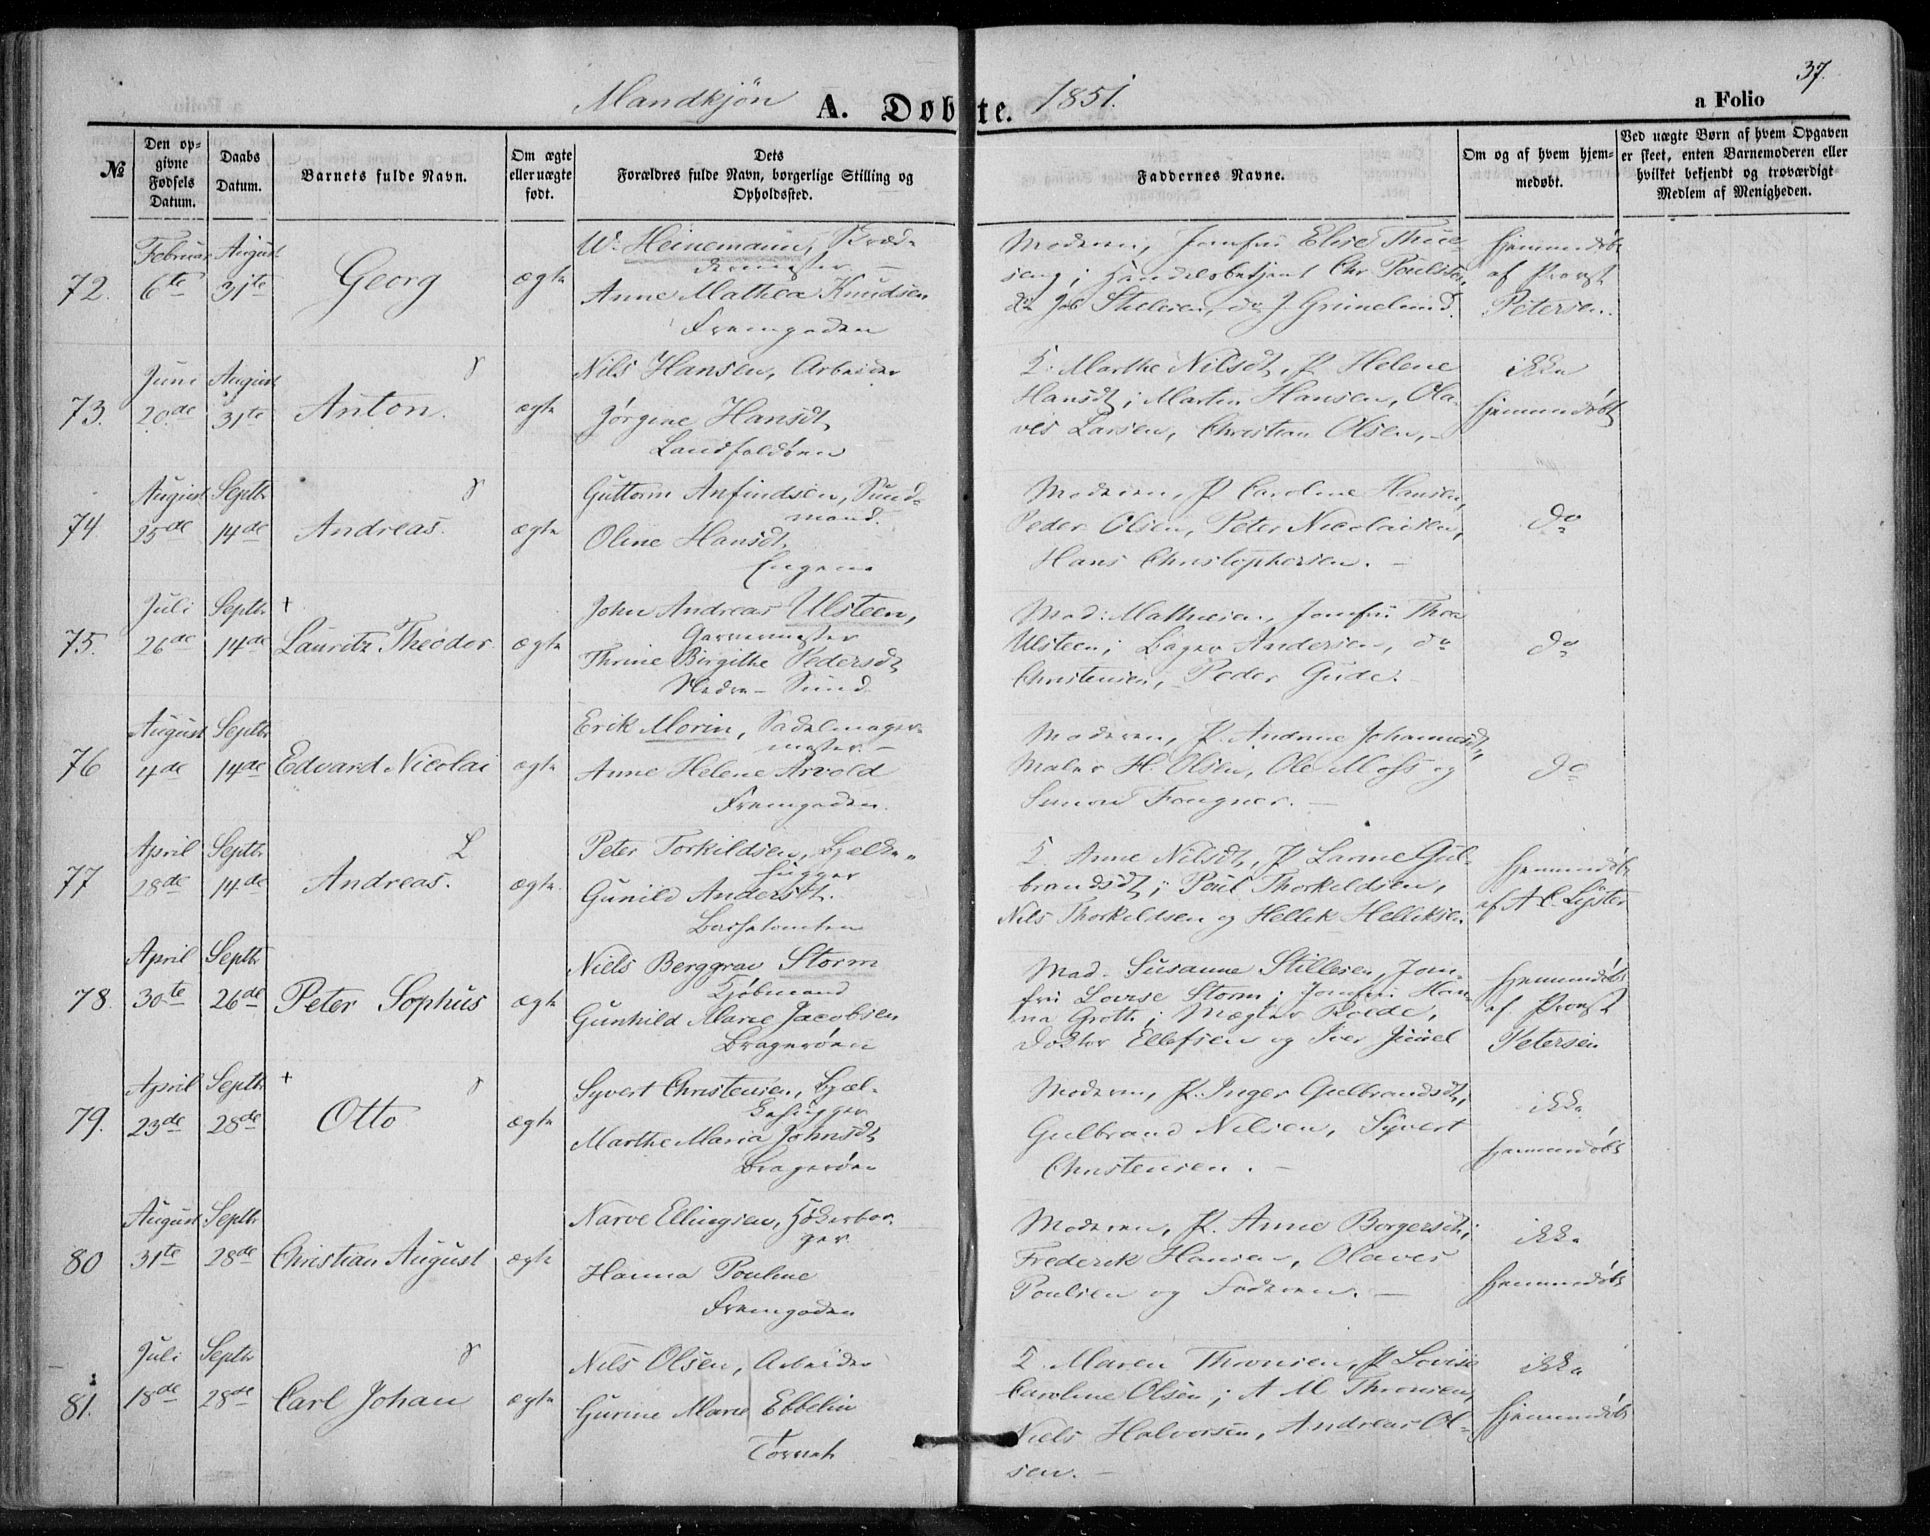 37.
Mandkjøn A. Døbte. 1851. a Folio
№
Den op-
givne
Fødsels
Datum.
Daabs
Datum.
Barnets fulde Navn.
Om ægte
eller uægte
født.
Dets
Forældres fulde Navn, borgerlige Stilling og
Opholdssted.
Faddernes Navne.
Om og af hvem hjem-
medøbt.
Ved uægte Børn af hvem Opgaven
er skeet, enten Barnemoderen eller
hvilket bekjendt og troværdigt
Medlem af Menigheden.
72.
Februar
6te
August
31te
Georg
ægte
W. Heinemann, Skræd-
dermester –
Anne Mathea Knudsen
Fremgaden
Moderen, Jomfru Elise Thue-
sens; Handelsbetjent Chr Poulsen,
do Jac Stillesen, do J. Grünelund.
hjemmedøbt
af Provst
Petersen.
73.
Juni
20de
August
31te
Anton.
ægte
Nils Hansen, Arbeider
Jørgine Hansdt,
Landfaldøen
K. Marthe Nilsdt, P. Helene
Hansdt; Martin Hansen, Ola-
ves Larsen, Christian Olsen, –
ikke
hjemmedøbt
74
August
25de
Septbr
14de
Andreas.
ægte
Guttorm Anfindsen, Sund-
mand.
Oline Hansdt.
Engene
Moderen, P. Caroline Hansen,
Peder Olsen, Peter Nicolaisen,
Hans Christophersen. –
do
75.
Juli
26de
Septbr
14de
+
Lauritz Theodor
ægte
John Andreas Ulsteen,
Garvermester
Thrine Birgithe Pedersdt
Nedre – Sund.
Mad: Mathiesen, Jomfru Thea
Ulsteen; Bager Andersen, do
Christensen, Peder Gude. –
do
76
August
4de
Septbr
14de
Edvard Nicolai
ægte
Erik Morin, Sadelmager-
mester –
Anne Helene Arvold
Fremgaden.
Moderen, P. Andrine Johannesdt,
Maler H. Olsen, Ole Moss og
Simon Fougner. –
do
77
April
28de
Septbr
14de
L
Andreas.
ægte.
Peter Torkildsen, Bjælke-
hugger
Gunild Andersdt.
K. Anne Nilsdt, P. Larine Gul-
brandsdt; Poul Thorkeldsen,
Nils Thorkildsen og Hellik Helliksen
hjemmedøbt
af A C Lyster
78.
April
30te
Septbr
26de
Peter Sophus
ægte
Niels Berggrav Storm
Kjøbmand
Gunhild Marie Jacobsen
Bragerøen
Mad. Susanne Stillesen, Jom-
fru Lovise Storm; Jomfru Han-
na Groth; Mægler Roede,
Doktor Ellefsen og Iver Juuel
hjemmedøbt
af Provst
Petersen
79.
April
23de
Septbr
28de
+
Otto
ægte
Syvert Christensen, Bjæl-
kehugger
Marthe Maria Johnsdt
Bragerøen
Moderen, P. Inger Gulbrandsdt,
Gulbrand Nilsen, Syvert
Christensen. –
ikke
hjemmedøbt
80
August
31te
Septbr
28de
Christian August
ægte
Narve Ellingsen, Høkerbor-
ger
Hanna Pouline
Fremgaden
Moderen, P. Anne Borgersdt;
Frederik Hansen, Olaves
Poulsen og Faderen. –
ikke
hjemmedøbt
81.
Juli
18de
Septbr
28de
Carl Johan
ægte
Nils Olsen, Arbeider
Gurine Marie Ebbelin
Tørnah
K. Maren Thronsen, P. Lovise
Caroline Olsen; A M Thronsen,
Niels Halvorsen, Andreas Ol-
sen. –
ikke
hjemmedøbt